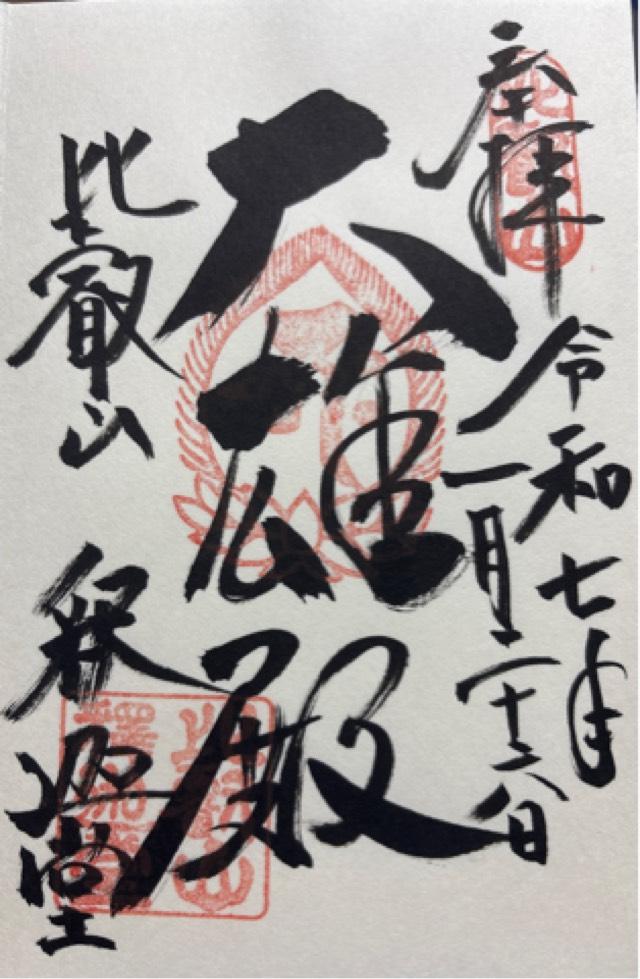 奉拝
令和七年
一月二十六日
大雄殿
比叡山
釈迦堂